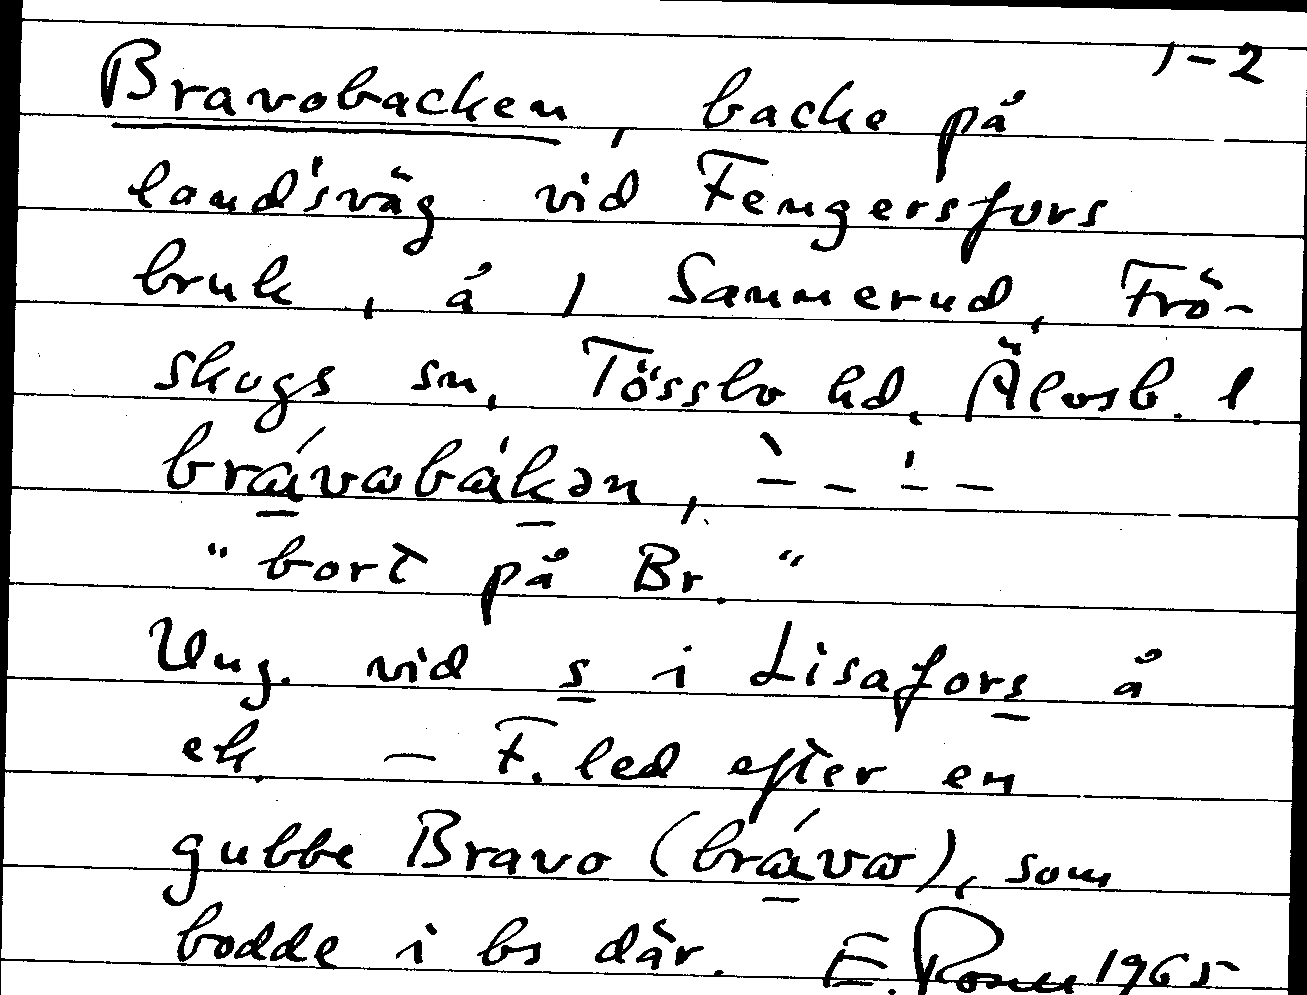 1-2
Bravobacken, backe på
landsväg vid Fengersfors
bruk, å 1 Sannerud, Frö-
skogs sn, Tössbo hd, Älvsb. l.
brávωbákən, `- - '- -
"bort på Br."
Ung. vid s i Lisafors å
ek. - F. led efter en
gubbe Bravo (brávω), som
bodde i bs där. E. Rosell 1965